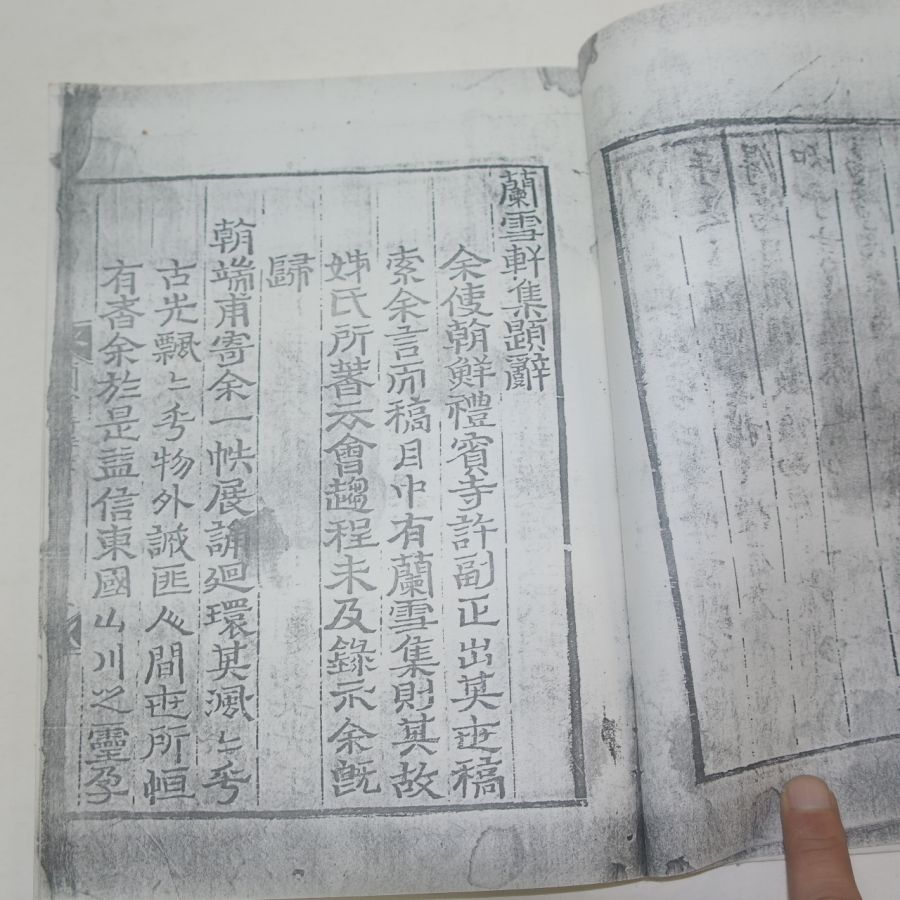 蘭雪軒集題辭
余使朝鮮禮賓寺許副正出其世稿
索余言而稿目中有蘭雪集則其故
姊氏所著云會趨程未及錄示余旣
歸
朝端甫寄余一帙展誦廻環其渢〻乎
古先飄〻乎物外誠匪人間世所恒
有者余於是益信東國山川之靈孕